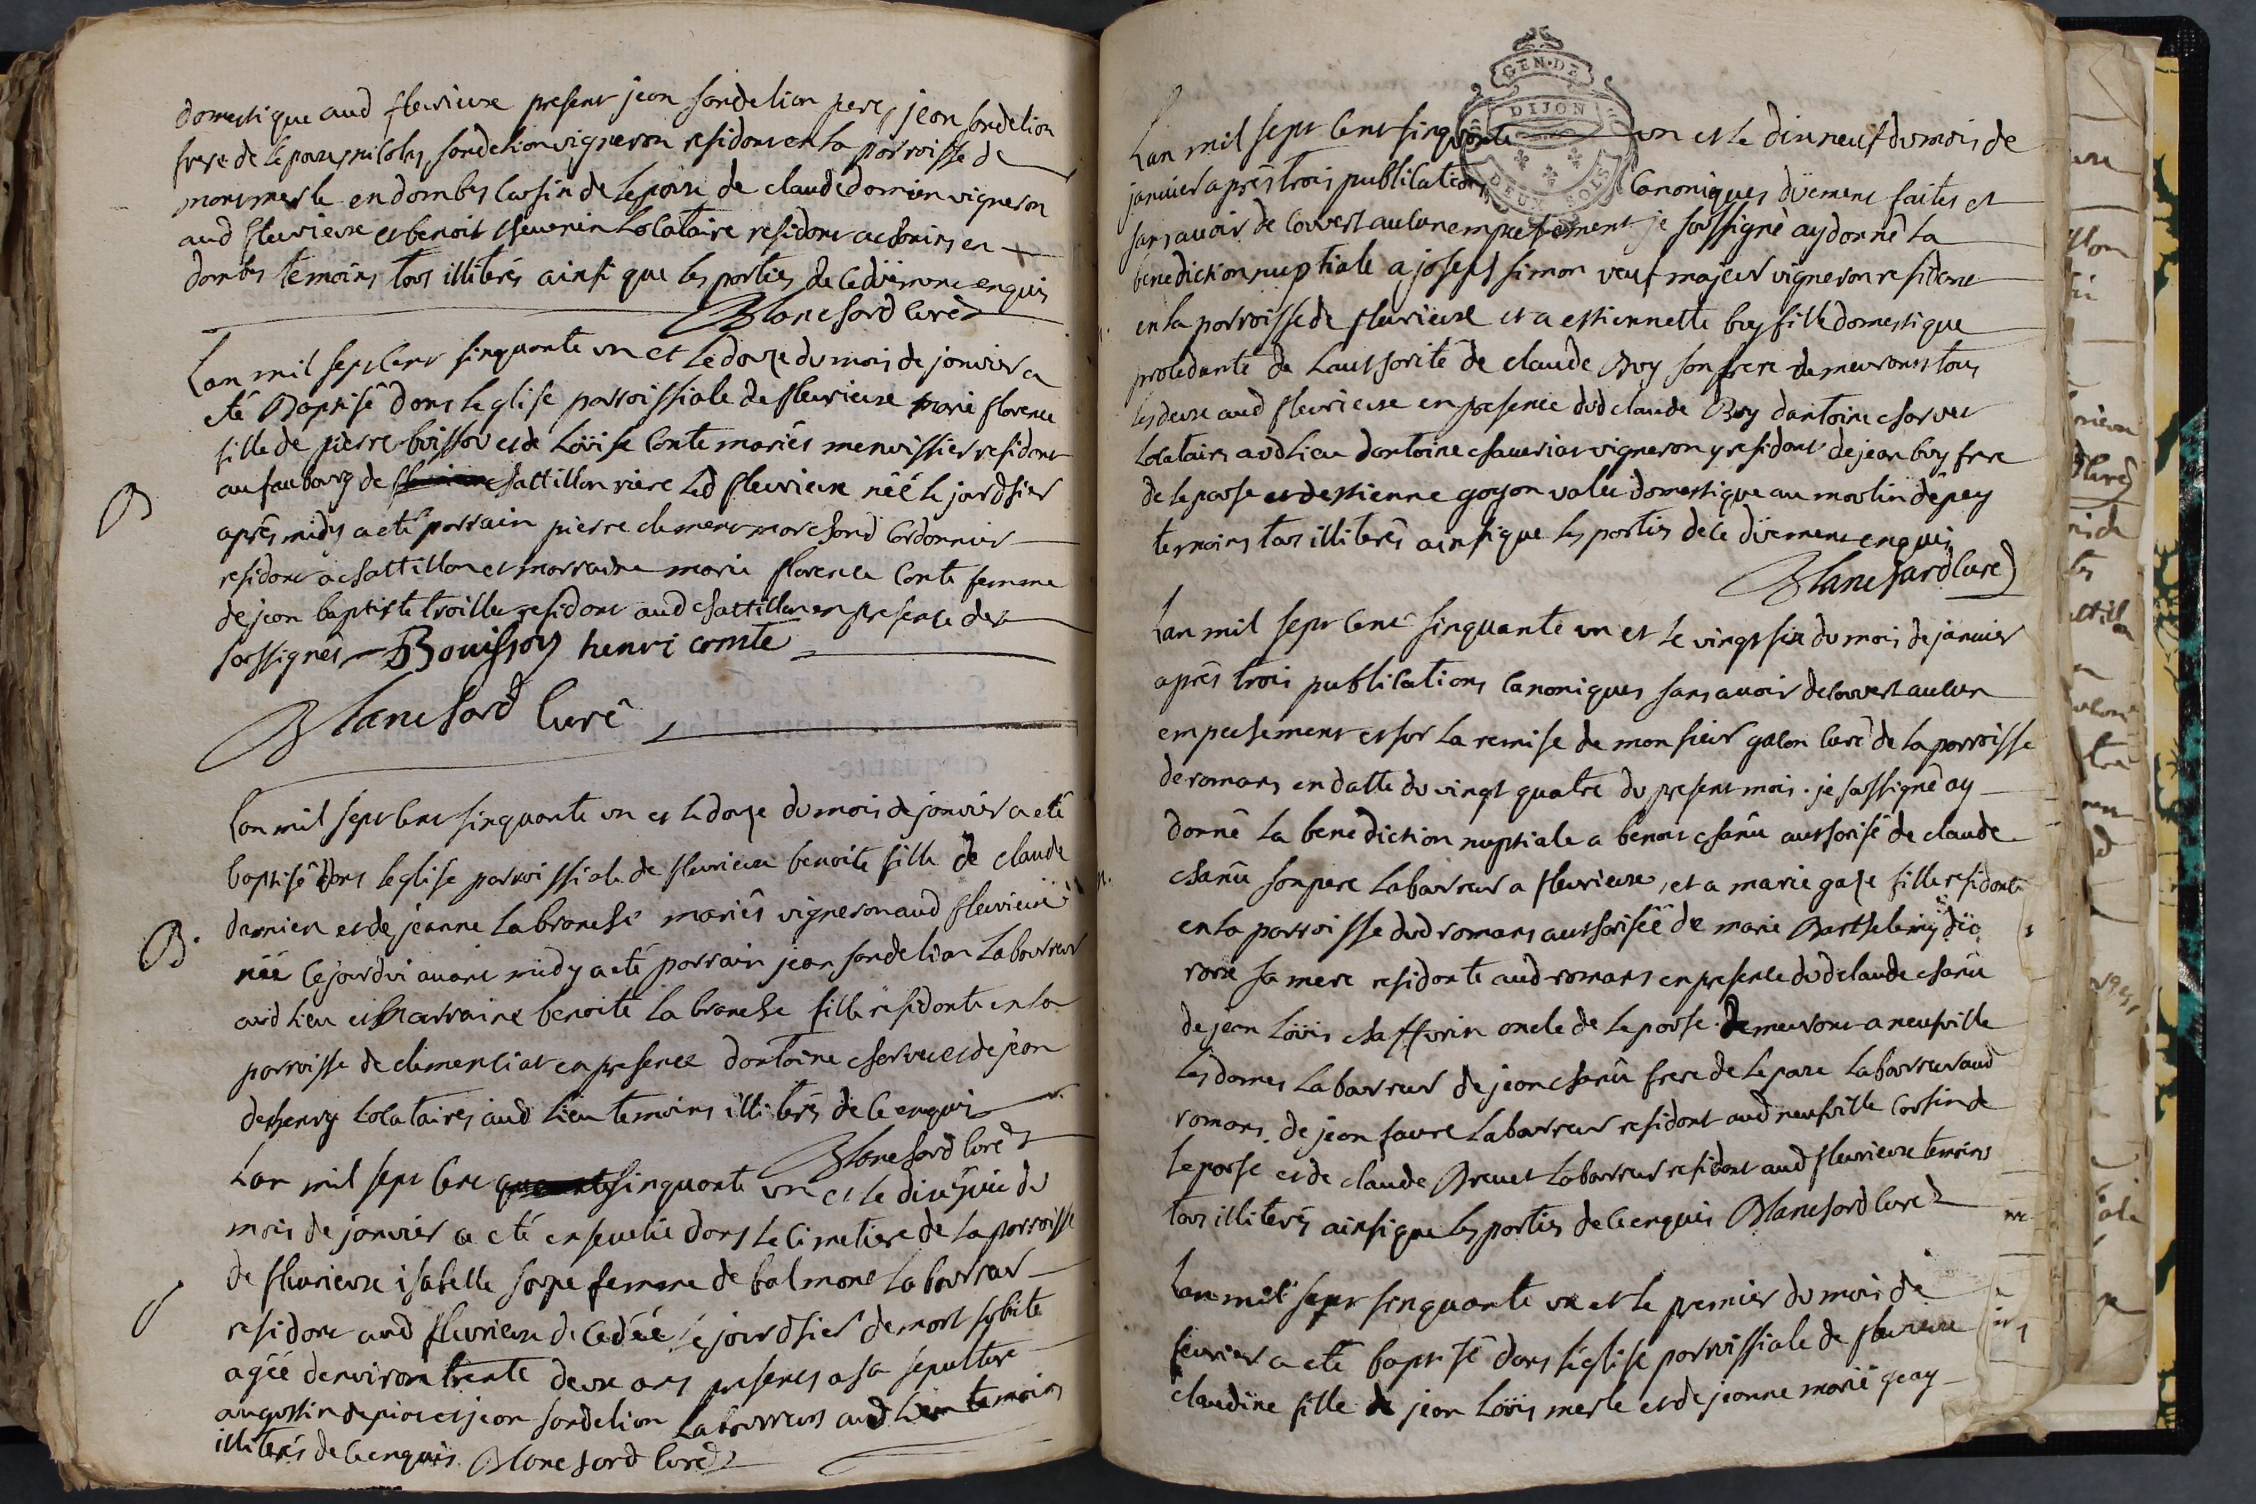 domestique aud fleurieux present jean sandelion pere, jean sandelion
frere de lepoux, nicolas sandelion vigneron residont en la parroisse de
montmerle en dombes cousin de lepoux de claude damien vigneron
aud fleurieux et benoit thevenin locataire residont a chonins en
dombes temoins tous illiterés ainsi que les parties de ce düement enquis
Blanchard curé
Lan mil sept cent sinquante un et le douze du mois de janvier a
eté Baptisé dans leglise parroissiale de fleurieux marie florence
fille de pierre boisson et de Loüise Conte mariés menuissier residont
au faubourg de chattillon riere led fleurieux née le jour d'hier
aprés midy a eté parrain pierre clement marchand cordonnier
residont a chattillon et marraine marie florence Conte femme
de jean baptiste troillet residont aud chattillon en presence des
soussignés Bouisson henri comte
Blanchard curé
B
Lan mil sept cent sinquante un et le douze du mois de janvier a eté
baptisé dans leglise parroissiale de fleurieux benoite fille de claude
damien et de jeanne Labranche mariés vigneron aud fleurieux
née cejourdui avant midy a eté parrain jean sandelion Laboureur
aud lieu et Marraine benoite La branche fille residonte en la
parroisse de clemenciat en presence dantoine charvet et de jean
dechenry locataires aud lieu temoins illiterés de ce enquis
Blanchard curé
B.
Lan mil sept cent sinquante un et le dix du
mois de janvier a eté ensevelie dans le cimetiere de la parroisse
de fleurieux isabelle femme de balmont laboureur
residont aud fleurieux decedéé le jour d'hier de mort subite
agéé denviron trente deux ans presents a sa sepulture
augustin et jean sandelion Laboureurs aud lieu temoins
illiterés de ce enquis Blanchard curé
GEN·DE
DIJON
DEUX SOLS
Lan mil sept cent sinquante un et le dixneuf du mois de
janvier aprés trois publications Canoniques düement faites et
sans avoir decouvert aucun empechement je soussigné ay donné la
benediction nuptiale a joseph simon veuf majeur vigneron residont
en la parroisse de fleurieux et a estiennette buy fille domestique
procedante de l'authorité de claude Buy son frere demeurants tous
les deux aud fleurieux en presence dud claude Buy dantoine charvet
locataire aud lieu dantoine chavriat vigneron y residont de jean buy frere
de lepouse et destienne goyon valet domestique au moulin dépey
temoins tous illiterés ainsi que les parties de ce düement enquis
Blanchard curé
Lan mil sept cent sinquante un et le vingt six du mois de janvier
aprés trois publications Canoniques sans avoir decouvert aucun
empechement et sur la remise de monsieur galon curé de la parroisse
de romans en datte du vingt quatre du present mois. je soussigné ay
donné la benediction nuptiale a benoit chanu authorisé de claude
chanu son pere labourreur a fleurieux, et a marie gaze fille residonte
en la parroisse dud romans authorisée de marie Barthelemy
sa mere residonte aud romans en presence dud claude chanu
de jean Loüis chaffurin oncle de lepouse. demeurant a neufville
les dames Labourreur de jean chanu frere de lepoux labourreur aud
romans. de jean favre labourreur residont aud neufville cousin de
lepouse et de claude Brevet labourreur residont aud fleurieux temoins
tous illiterés ainsi que les parties de ce enquis Blanchard curé
Lan mil sept sinquante un et le premier du mois de
fevrier a eté baptisé dans leglise parroissiale de fleurieux
claudine fille de jean Loüis merle et de jeanne marie geay